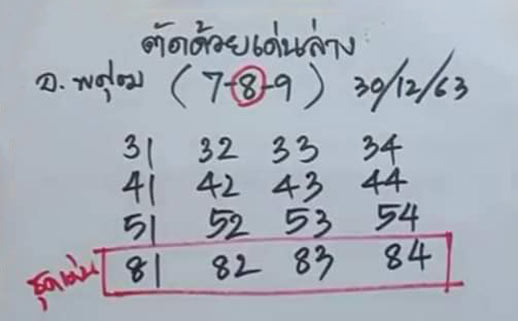 ตัดด้วยเด่นล่าง
อ. พศุตม (7-8-9) 30/12/63
31 32 33 34
41 42 43 44
51 52 53 54
ชุดเด่น 81 82 83 84